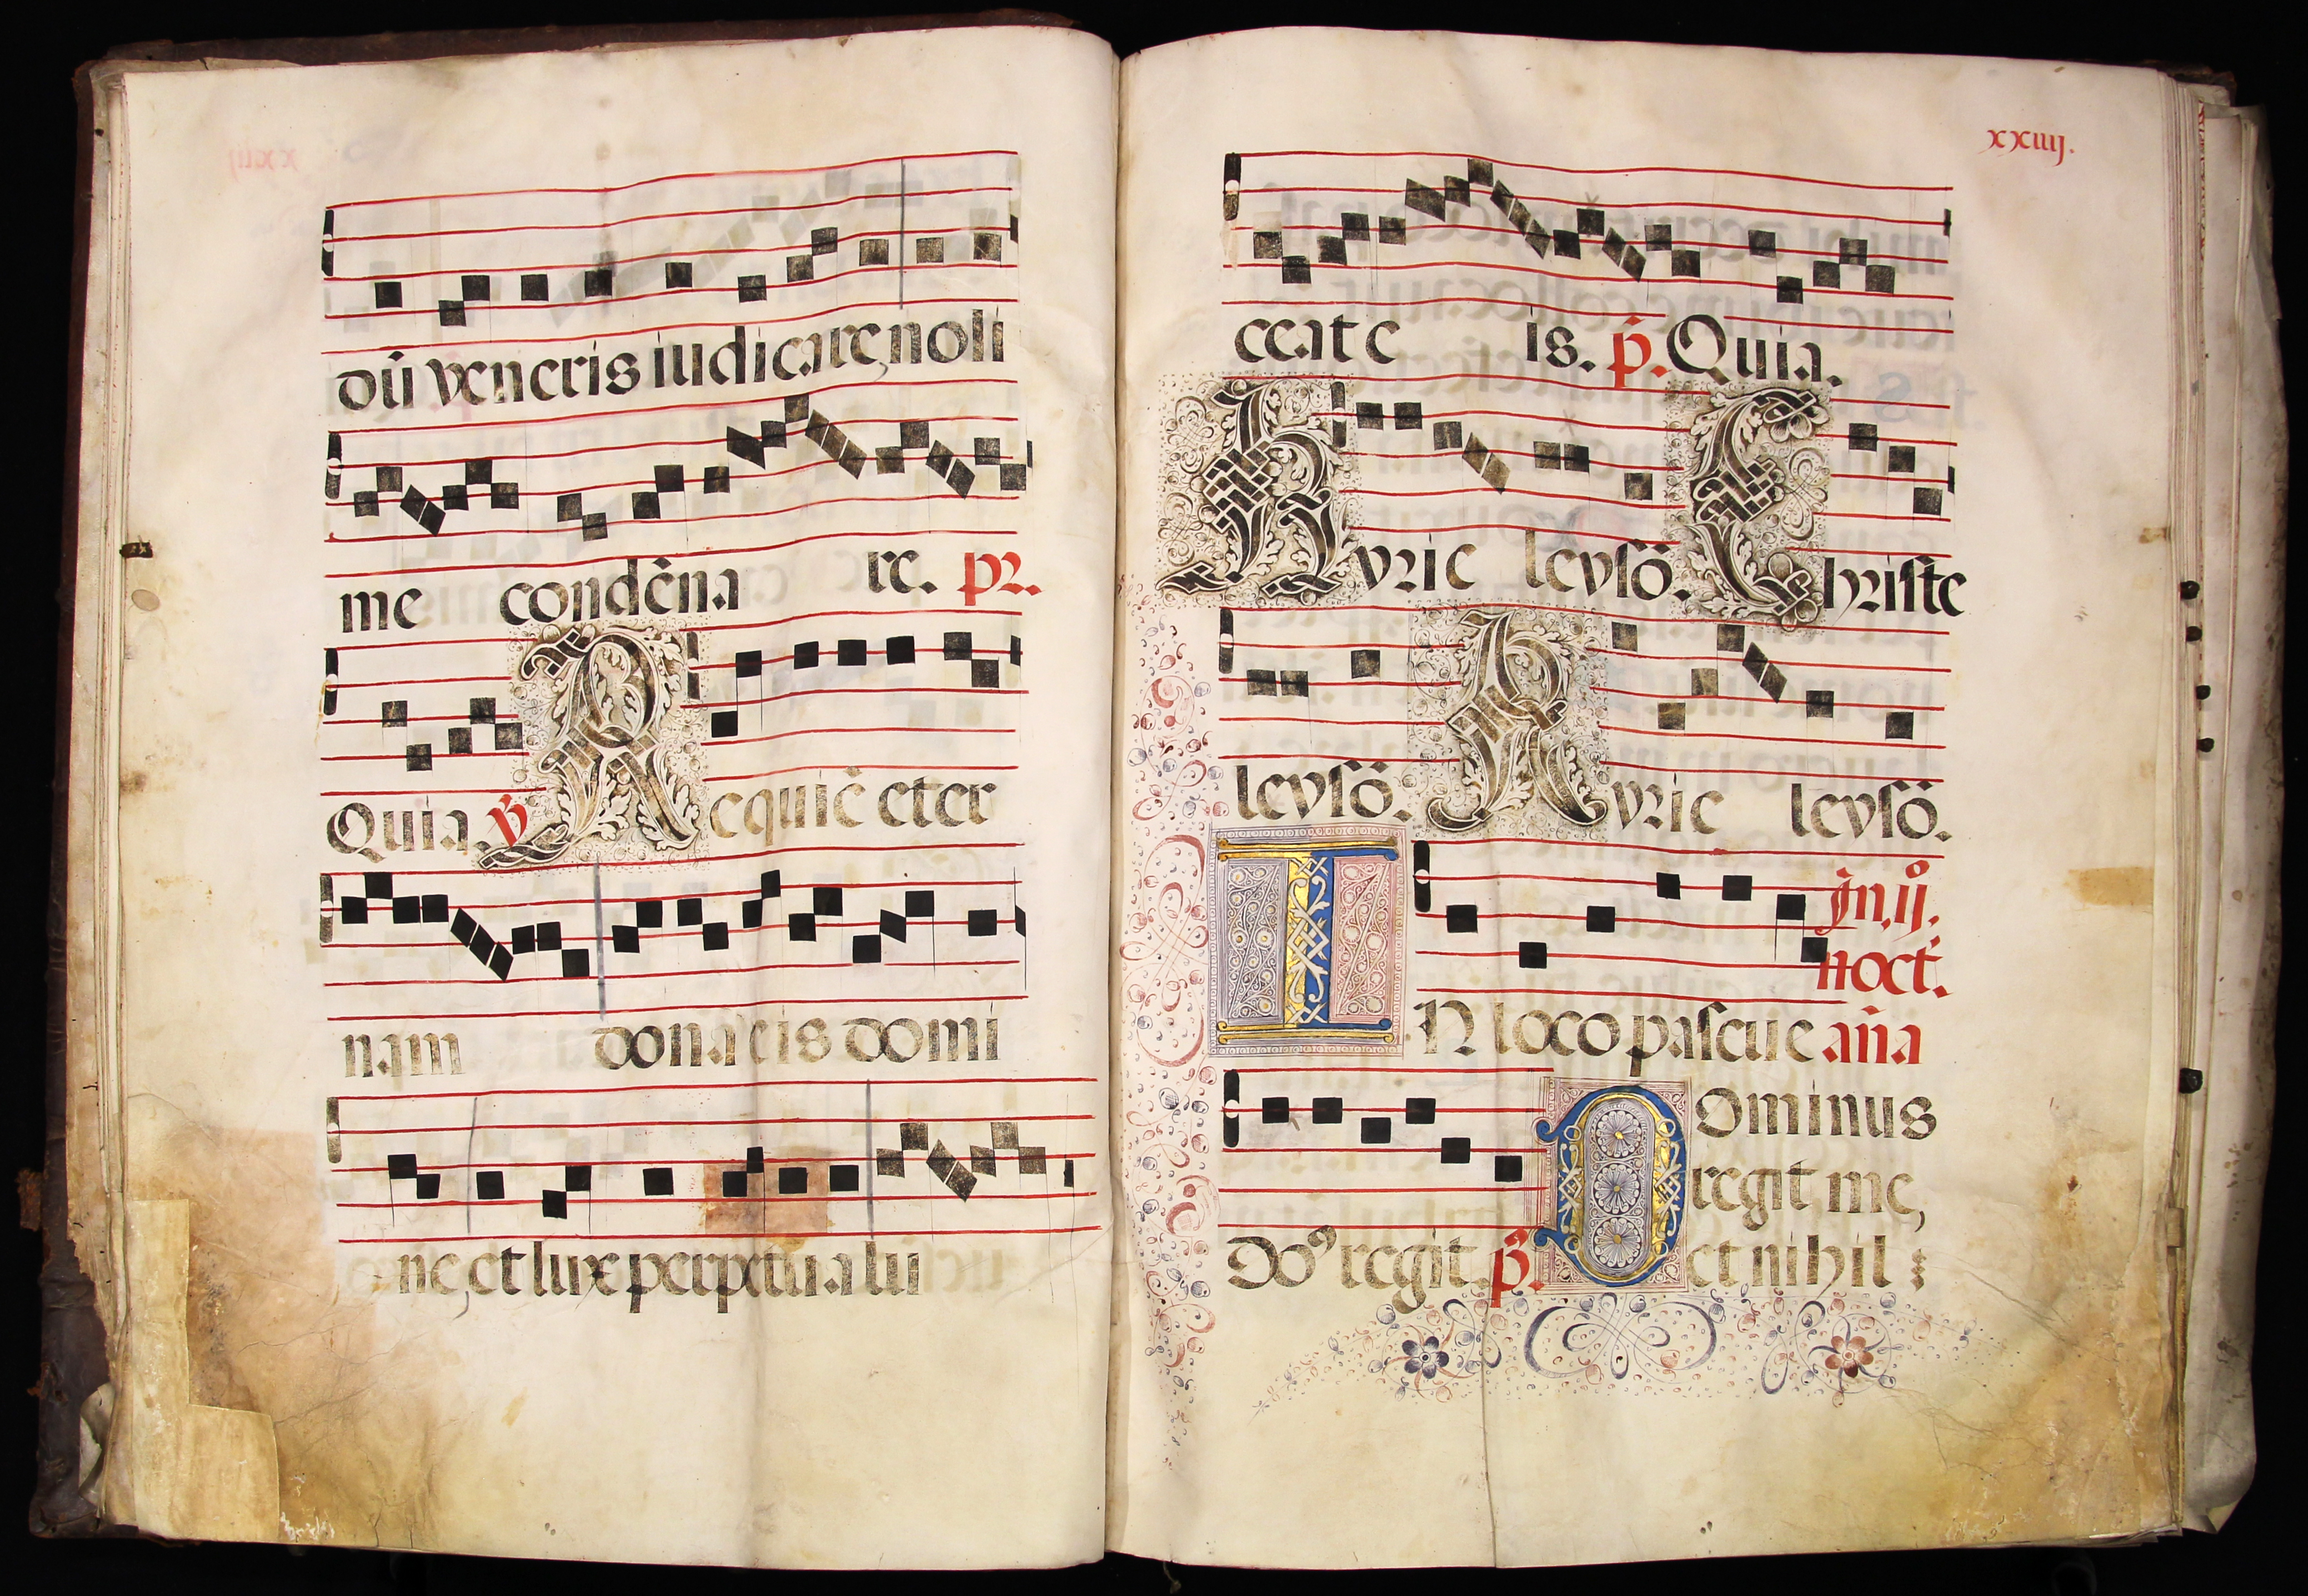 dū veneris iudicare, noli
me condēna re. pr.
Quia. v̄ Requiē eter
nam dona eis domi
ne, et lux perpetua lu
xxiiij.
ceat e is. p̄. Quia.
Kyrie leysō. Christe
leysō. Kyrie leysō.
In.ij.
noct.
IN loco pascue an̄a
Dominus
regit me,
Do⁹ regit. p̄. et nihil :